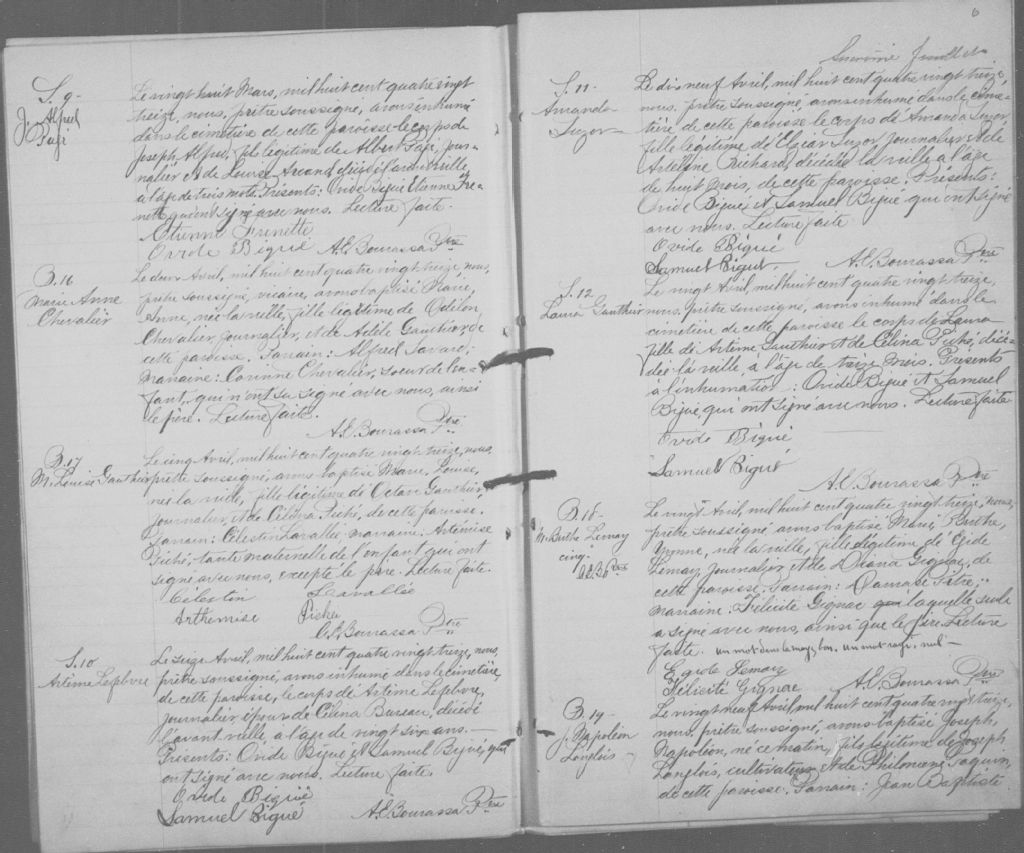 S. 9-
J. Alfred
Pagé
Le vingt huit Mars, mil huit cent quatre vingt
treize, nous, prêtre soussigné, avons inhumé
dans le cimetière de cette paroisse le corps de
Joseph Alfred, fils légitime de Albert Pagé, jour-
nalier et de Louise Arcand, décédé l'avant veille
à l'âge de trois mois. Présents: Ovide Bigué Etienne Fre-
nette qui ont signé avec nous. Lecture faite.
Etienne Frenette
Ovide Bigué A.E. Bourassa Ptre
B. 16
Marie Anne
Chevalier
Le deux Avril, mil huit cent quatre vingt treize, nous,
prêtre soussigné, vicaire, avons baptisé Marie,
Anne, née la veille, fille légitime de Odilon
Chevalier, journalier, et de Adèle Gauthier, de
cette paroisse. Parrain: Alfred Savard;
Marraine: Corinne Chevalier, soeur de l'en-
fant, qui n'ont su signé avec nous, ainsi
le père. Lecture faite.
A.E. Bourassa Ptre
B. 17
M. Louise Gauthier
Le cinq Avril, mil huit cent quatre vingt treize, nous
prêtre soussigné, avons baptisé Marie, Louise,
née la veille, fille légitime de Octave Gauthier,
journalier, et de Célina Piché, de cette paroisse.
Parrain: Célestin Lavallée, marraine: Artémise
Piché, tante maternelle de l'enfant qui ont
signé avec nous, excepté le père. Lecture faite.
Célestin Lavallée
Arthemise Pishe
A.E. Bourassa Ptre
S. 10
Artème Lefebvre
Le seize Avril, mil huit cent quatre vingt treize, nous,
prêtre soussigné, avons inhumé dans le cimetière
de cette paroisse, le corps de Artème Lefebvre,
journalier, époux de Célina Bureau, décédé
l'avant veille à l'âge de vingt six ans.
Présents: Ovide Bigué et Samuel Bigué, qui
ont signé avec nous. Lecture faite.
Ovide Bigué
Samuel Bigué A.E. Bourassa Ptre
6
S. 11-
Amanda
Suzor
Le dix neuf Avril, mil huit cent quatre vingt treize,
nous, prêtre soussigné, avons inhumé dans le cime-
tière de cette paroisse le corps de Amanda Suzor,
fille légitime d'Elzéar Suzor, journalier et de
Adeline Richard, décédée la veille à l'âge
de huit mois, de cette paroisse. Présents:
Ovide Bigué et Samuel Bigué qui ont signé
avec nous. Lecture faite
Ovide Bigué
Samuel Bigué. A.E. Bourassa Ptre
S. 12
Laura Gauthier
Le vingt Avril, mil huit cent quatre vingt treize,
nous, prêtre soussigné, avons inhumé dans le
cimetière de cette paroisse le corps de Laura
fille de Artème Gauthier et de Célina Piché, décé-
dée la veille à l'âge de treize mois. Présents
à l'inhumation: Ovide Bigué et Samuel
Bigué, qui ont signé avec nous. Lecture faite
Ovide Bigué
Samuel Bigué
A.E. Bourassa Ptre
B. 18-
M. Berthe Lemay
cinq
A.E.B. Ptre
Le vingt Avril, mil huit cent quatre vingt treize, nous,
prêtre soussigné, avons baptisé Marie Berthe,
née la veille, fille légitime de Egide
Lemay, journalier et de Diana Gignac, de
cette paroisse. Parrain: Damase
Marraine: Félicité Gignac laquelle seule
a signé avec nous, ainsi que le père. Lecture
faite. un mot bon. Un mot rayé, nul-
Egide Lemay
Félicité Gignac A.E. Bourassa Ptre
B. 19-
J. Napoléon
Langlois
Le vingt neuf Avril mil huit cent quatre vingt treize,
nous, prêtre soussigné, avons baptisé Joseph,
Napoléon, né ce matin, fils légitime de Joseph
Langlois, cultivateur et de Philomène Paquin,
de cette paroisse. Parrain: Jean Baptiste